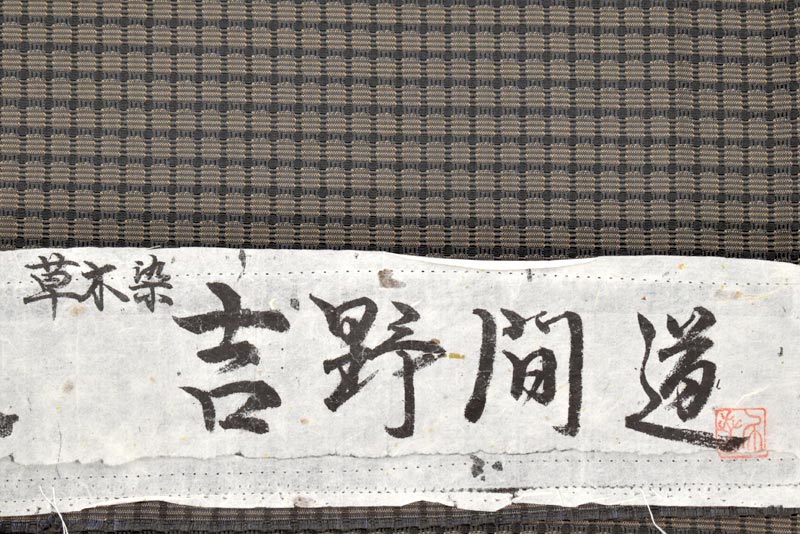 草木染
吉野間道